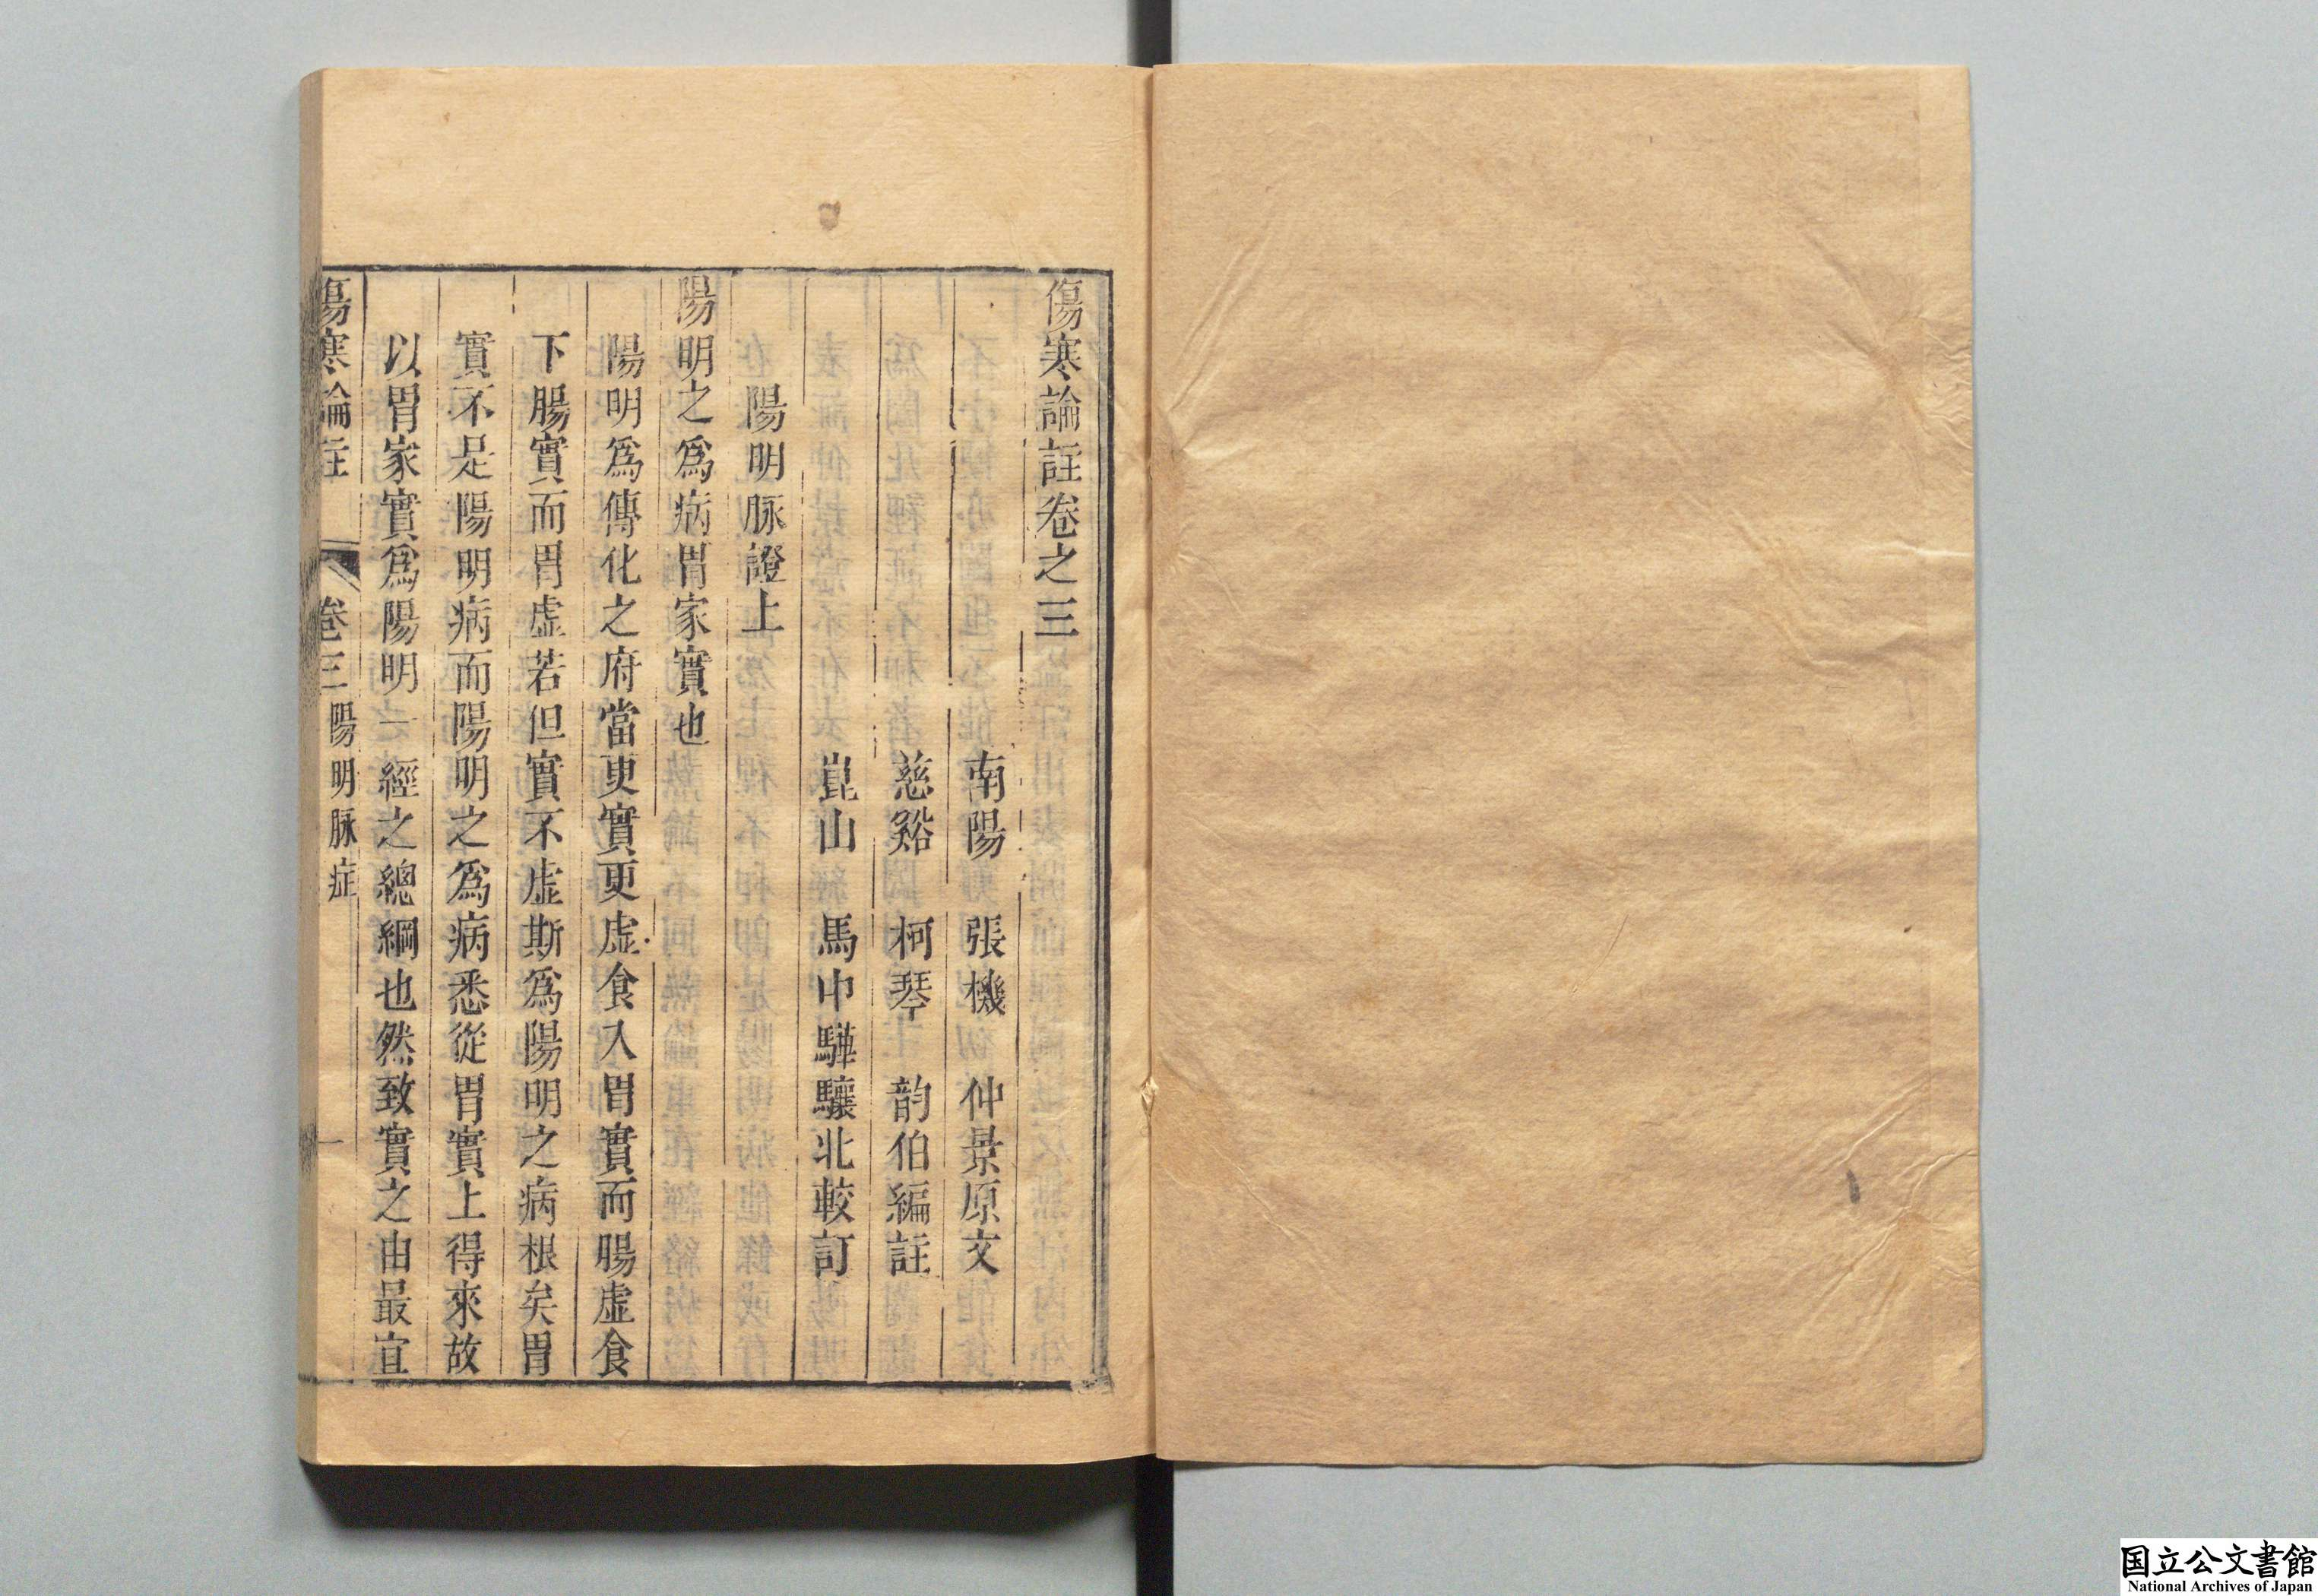 傷寒論註卷之三
南陽 張機 仲景原文
慈谿 柯琴 韵伯編註
崑山 馬中驊驤北較訂
陽明脉證上
陽明之爲病胃家實也
陽明爲傳化之府當更實更虛食入胃實而腸虛食
下腸實而胃虛若但實不虛斯爲陽明之病根矣胃
實不是陽明病而陽明之爲病悉從胃實上得來故
以胃家實爲陽明一經之總綱也然致實之由最宜
傷寒論註 卷三陽明脉症 一
国立公文書館
National Archives of Japan